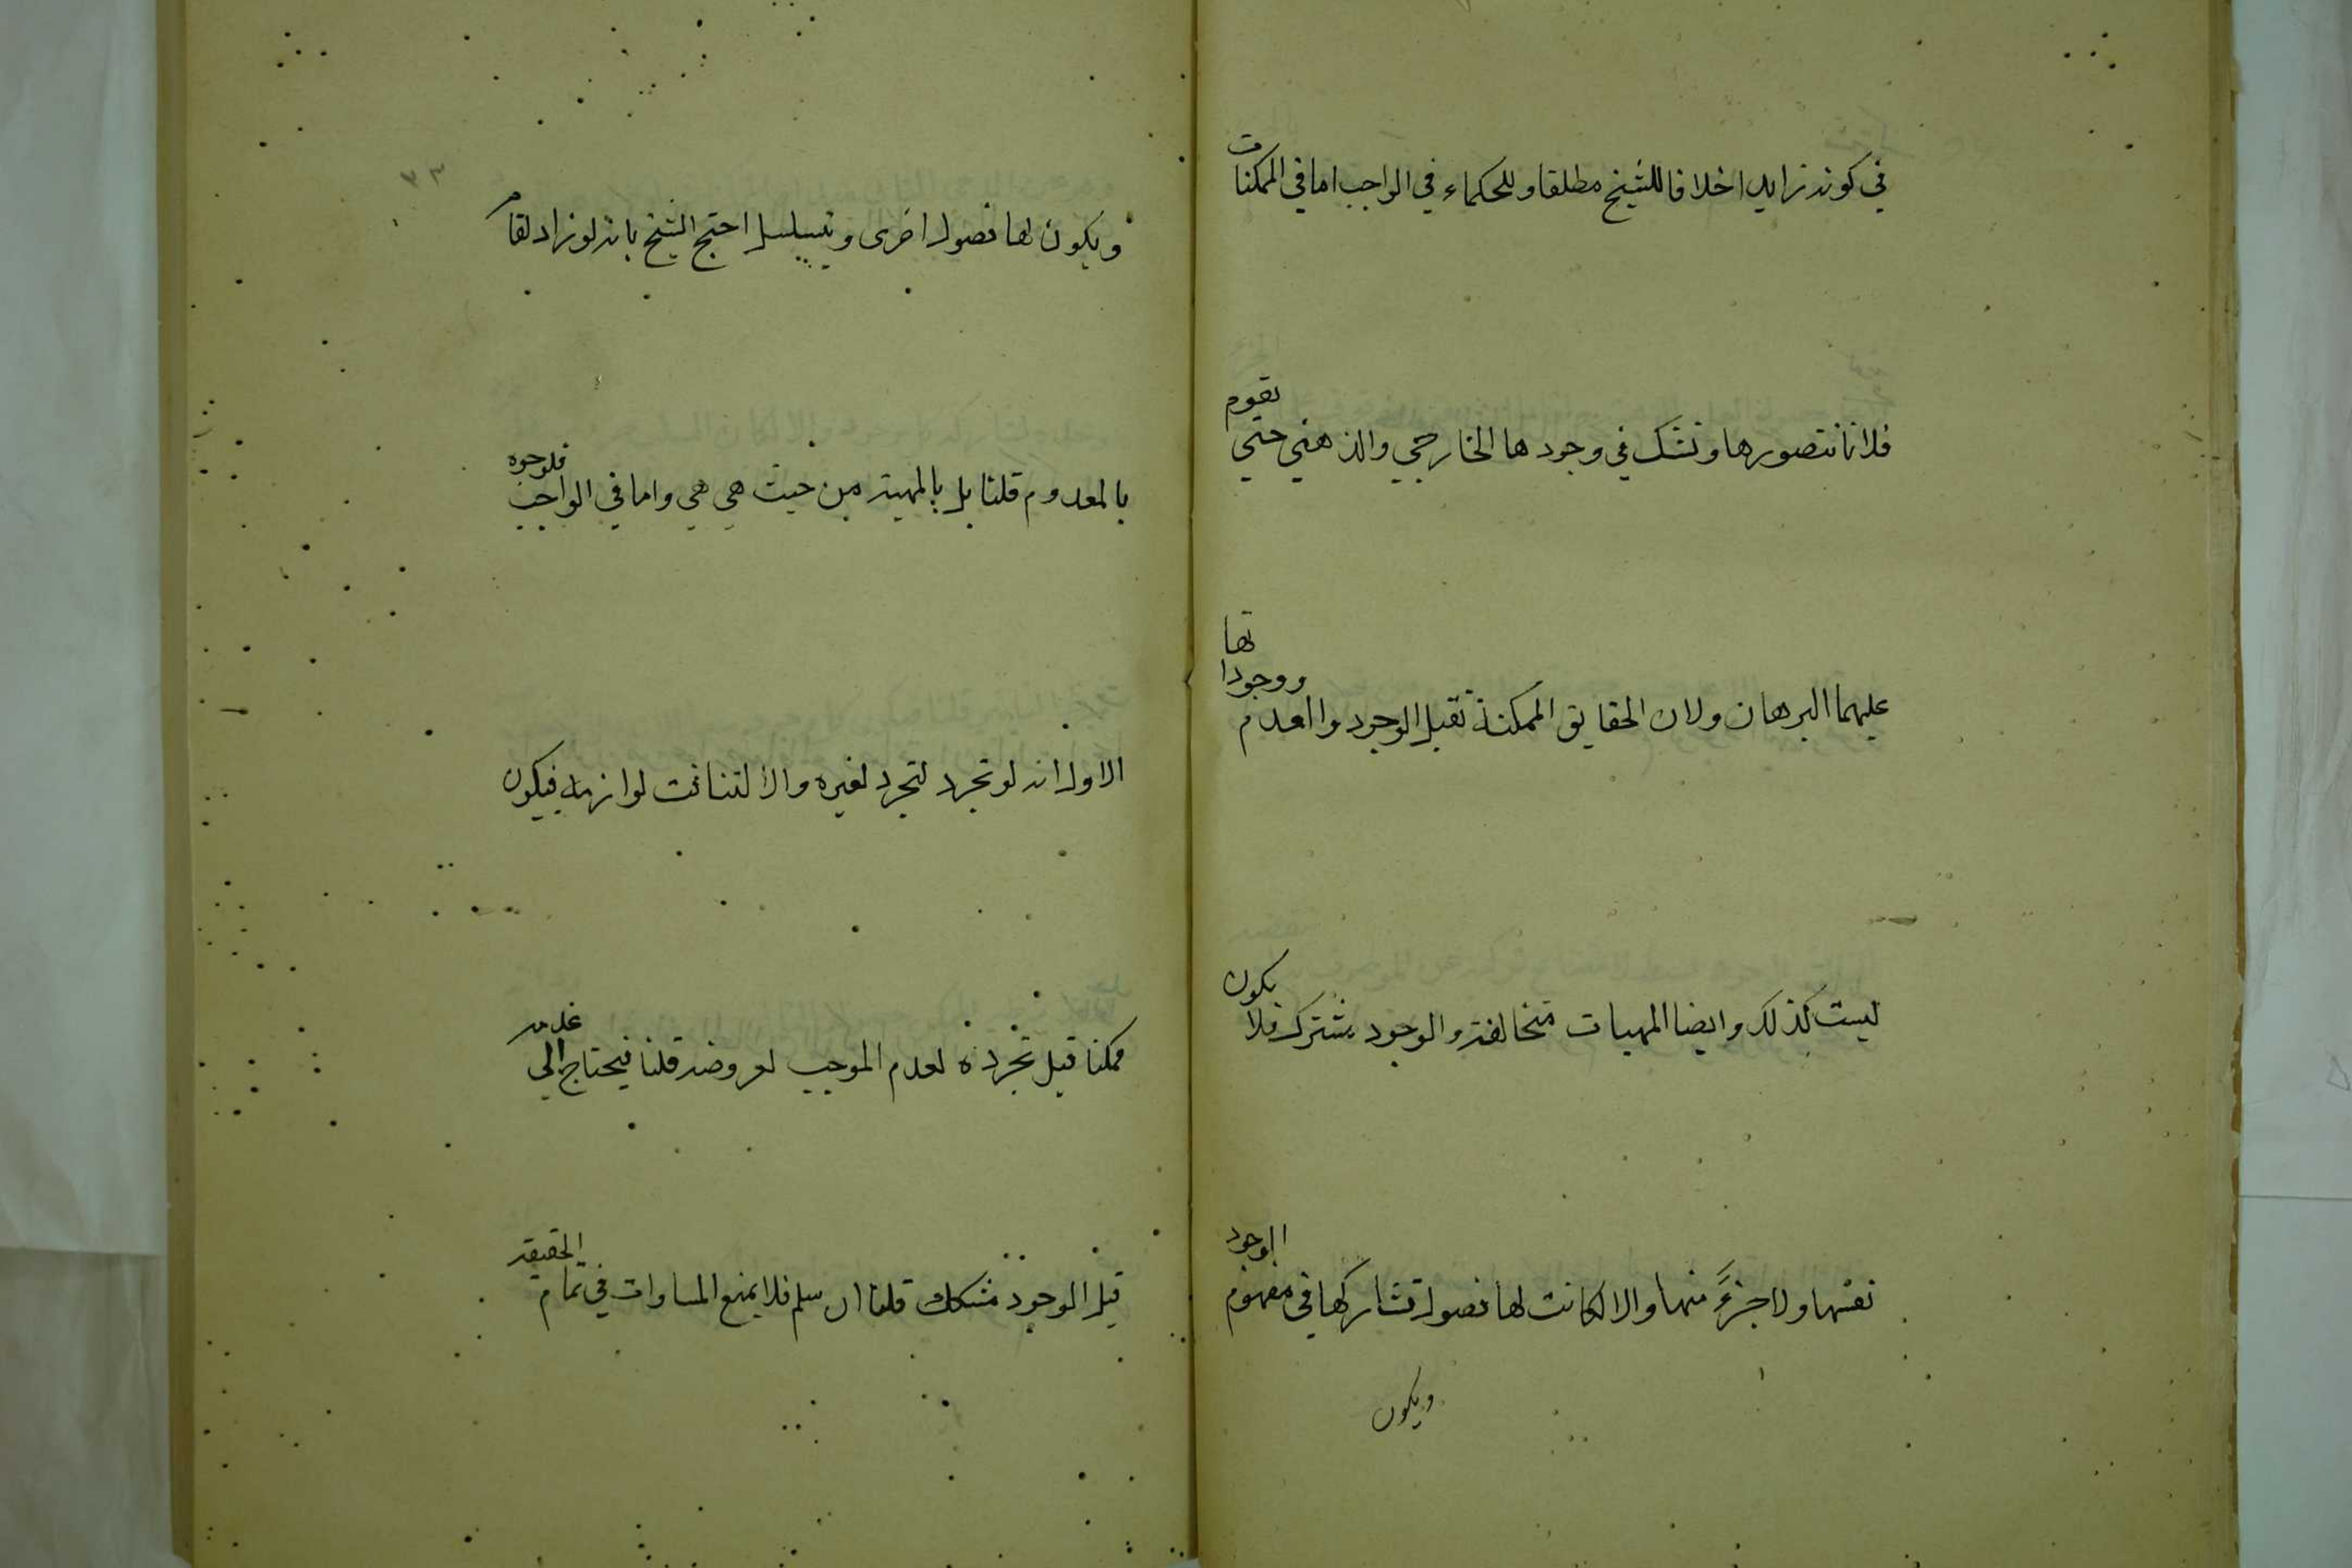 في كونه زايدا خلافا للشيخ مطلقا وللحكماء في الواجب اما في الممكنات
فلانا نتصورها ونشك في وجودها الخارجي والذهني حتي يقوم
عليهما البرهان ولان الحقايق الممكنة تقبل الوجود والعدم ووجوداتها
ليست كذلك وايضا المهيات متخالفة والوجود مشترك فلا يكون
نفسها ولا جزءً منها والا لكانت لها فصول تشاركها في مفهوم الوجود
ويكون
٣٣
ويكون لها فصول اخرى ويتسلسل احتج الشيخ بانه لو زاد لقام
بالمعدوم قلنا بل بالمهية من حيث هي هي واما في الواجب فلوجوه
الاول انه لو تجرد لتجرد لغيره والا لتنافت لوازمه فيكون
ممكنا قيل تجرده لعدم الموجب لعروضه قلنا فيحتاج الي عدمه
قيل الوجود مشكك قلنا ان سلم فلا يمنع المساوات في تمام الحقيقة